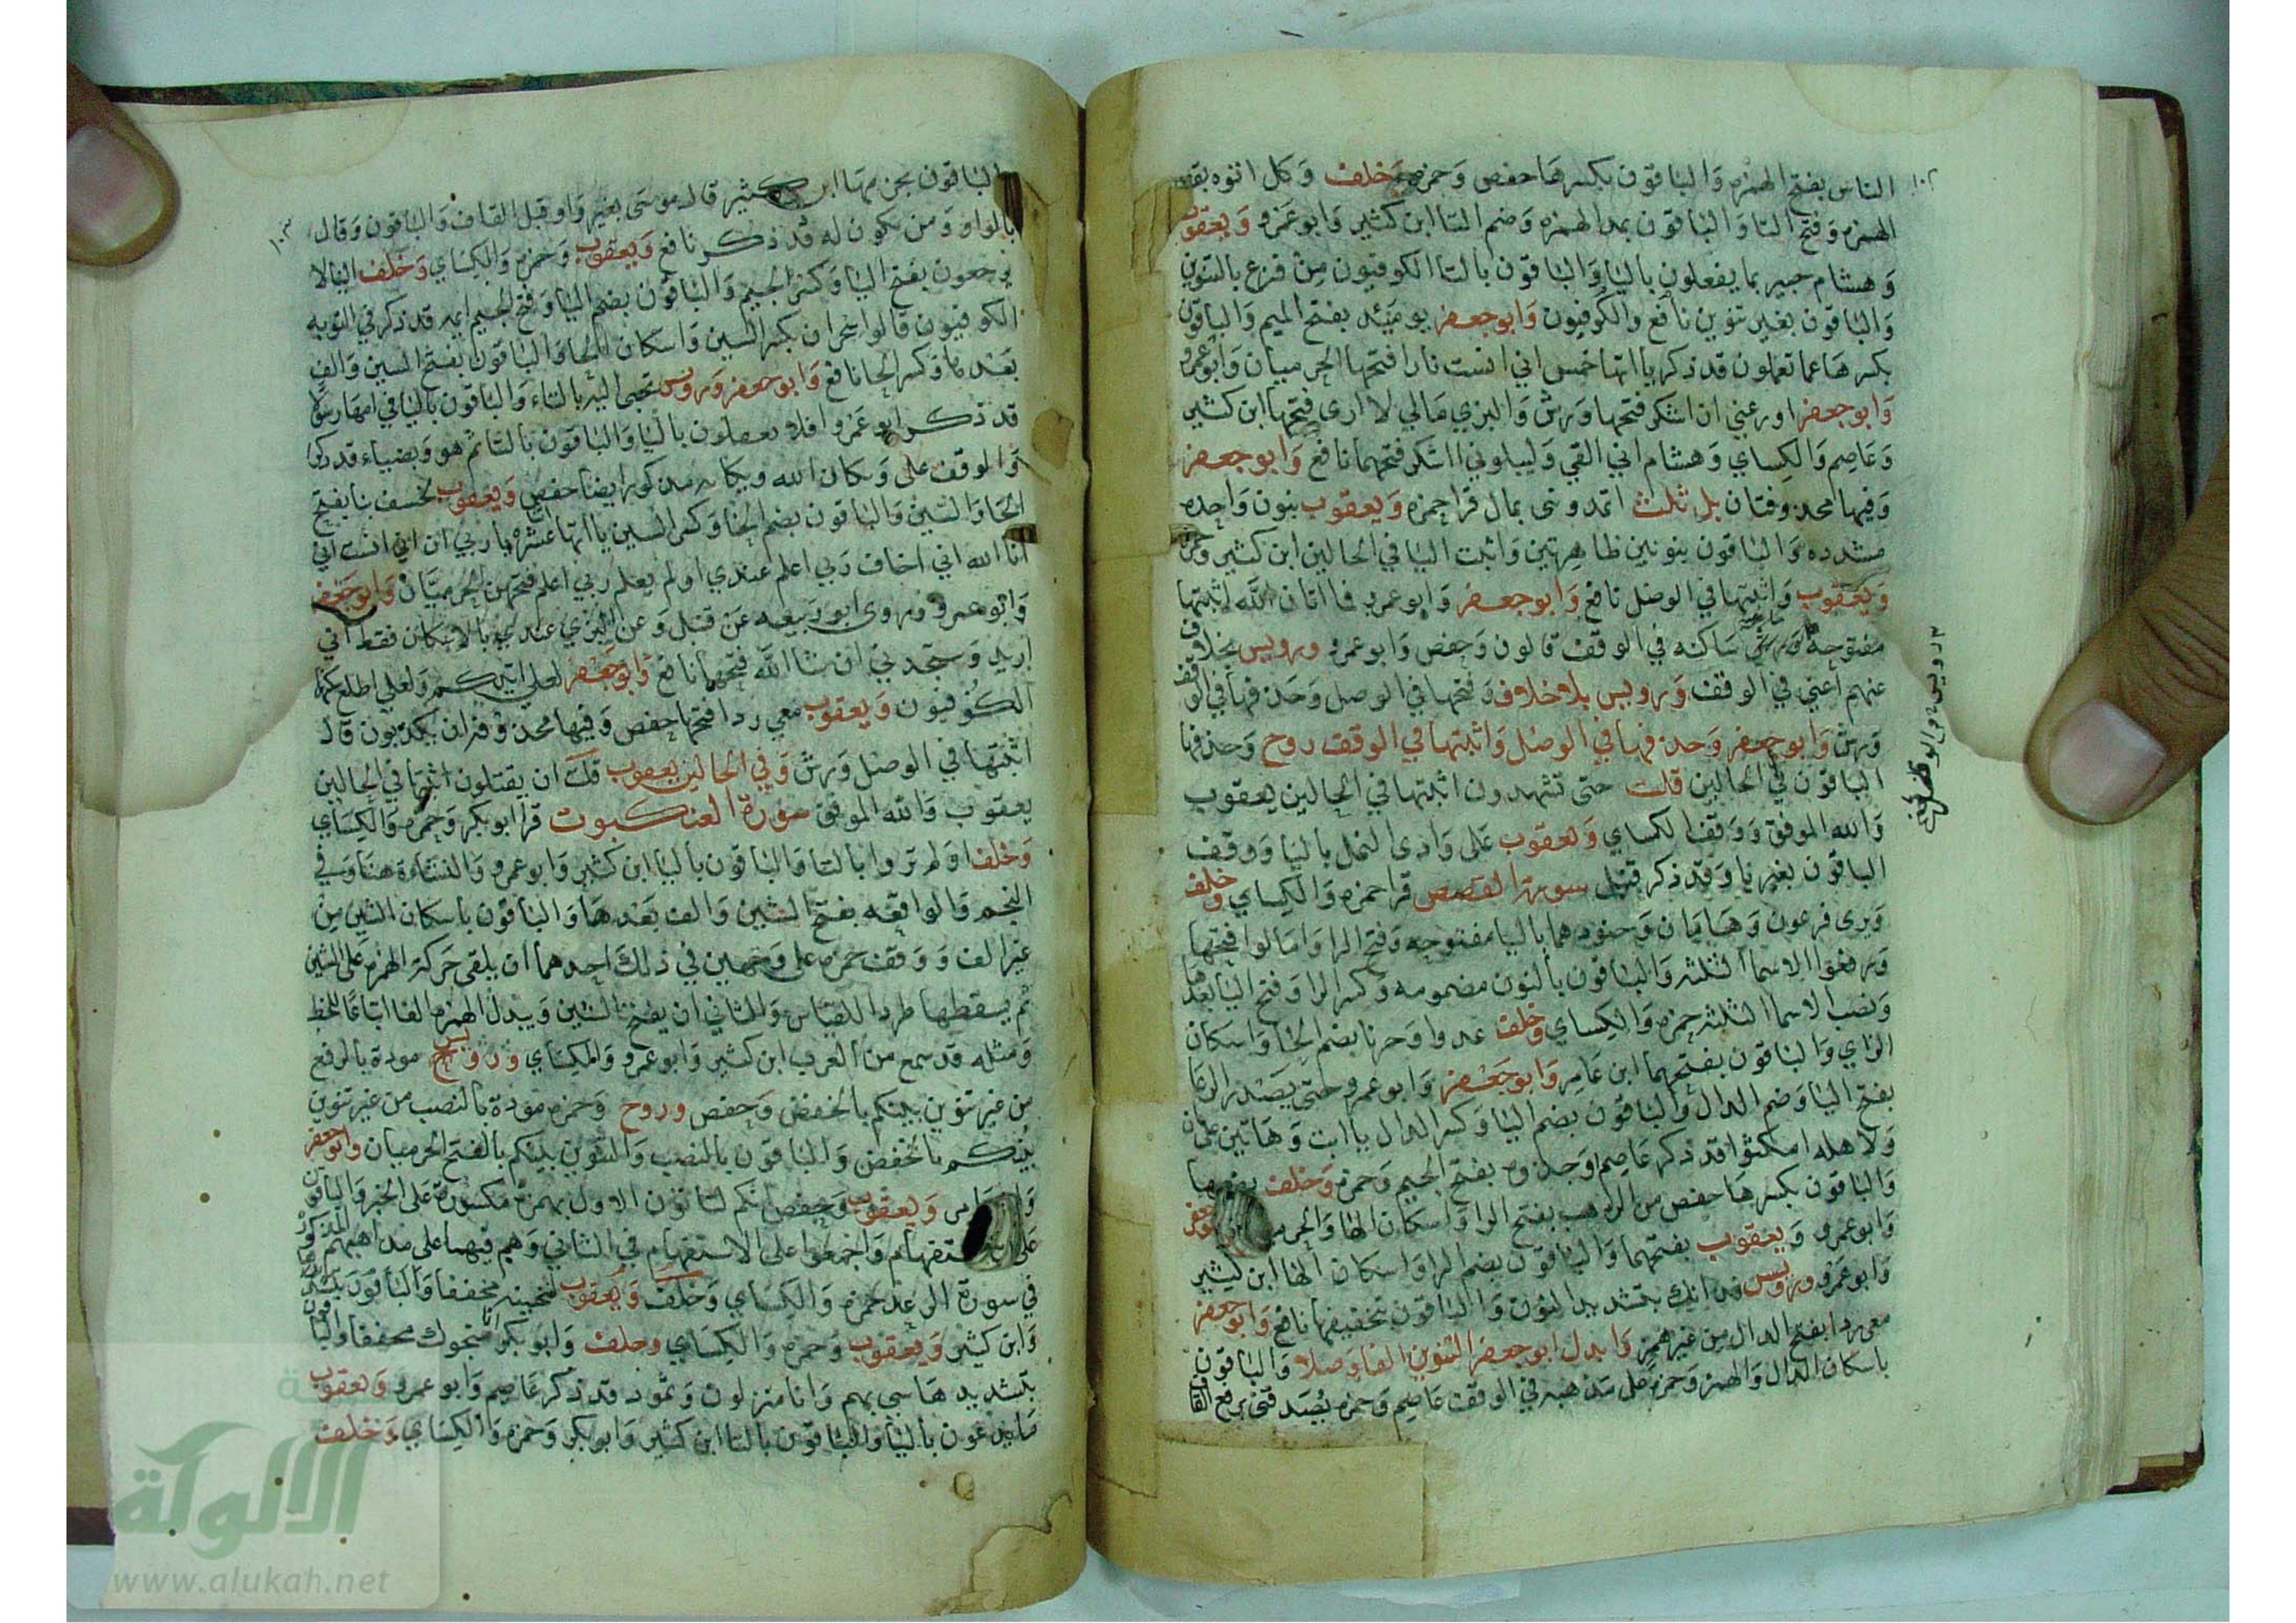 ١٠٢
الناس بفتح الهمزه والباقون بكسرها حفص وحمزه وخلف وكل اتوه بقصر
الهمزه وفتح التا والباقون بمد الهمزه وضم التا ابن كثير وابو عمرو ويعقوب
وهشام خبير بما يفعلون باليا والباقون بالتا الكوفيون من فزع بالتنوين
والباقون بغير تنوين نافع والكوفيون وابو جعفر يوميئذ بفتح الميم والباقون
بكسرها عما تعملون قد ذكر ياآتها خمس اني انست نارا فتحها الحرميان وابو عمرو
وابو جعفر اوزعني ان اشكر فتحها ورش والبزي مالي لا ارى فتحها ابن كثير
وعاصم والكساي وهشام اني القي وليبلوني ااشكر فتحهما نافع وابو جعفر
وفيها محذوفتان بل ثلث اتمدونني بمال قرا حمزه ويعقوب بنون واحده
مشدده والباقون بنونين ظاهرتين واثبت اليا في الحالين ابن كثير وحمزه
ويعقوب واثبتها في الوصل نافع وابو جعفر وابو عمرو فما اتان الله اثبتها
مفتوحه ساكنه في الوقف قالون وحفص وابو عمرو ورويس بخلاف
عنهم اعني في الوقف ورويس بلا خلاف وفتحها في الوصل وحذفها في الوقف
ورش وابو جعفر وحذفها في الوصل واثبتها في الوقف روح وحذفها
الباقون في الحالين قلت حتى تشهدون اثبتها في الحالين يعقوب
والله الموفق ووقف الكساي ويعقوب على وادى النمل باليا ووقف
الباقون بغير يا وقد ذكر قبل سورة القصص قرا حمزه والكساي وخلف
ويرى فرعون وهامان وجنودهما باليا مفتوحه وفتح الرا وامالوا فتحها
ورفعوا الاسما الثلثه والباقون بالنون مضمومه وكسر الرا وفتح اليا بعدها
ونصب الاسما الثلثه حمزه والكساي وخلف عدوا وحزنا بضم الحا واسكان
الزاي والباقون بفتحهما ابن عامر وابو جعفر وابو عمرو حتى يصدر الرعا
بفتح اليا وضم الدال والباقون بضم اليا وكسر الدال ياابت وهاتين
ولاهله امكثوا قد ذكر عاصم اوجذوه بفتح الجيم وحمزه وخلف بضمها
والباقون بكسرها حفص من الرهب بفتح الرا واسكان الها والحرميان وابو جعفر
وابو عمرو ويعقوب بفتحهما والباقون بضم الرا واسكان الها ابن كثير
وابو عمرو ورويس فذانك بتشديد النون والباقون بتخفيفها نافع وابو جعفر
معي ردا بفتح الدال من غير همز وابدل ابو جعفر التنوين الفا وصلا والباقون
باسكان الدال والهمز وحمزه على مذهبه في الوقف عاصم وحمزه يصدقني برفع القاف
١٠٣
والباقون بجزمها ابن كثير قال موسى بغير واو قبل القاف والباقون وقال
بالواو ومن يكون له قد ذكر نافع ويعقوب وحمزه والكساي وخلف الينا لا
يرجعون بفتح اليا وكسر الجيم والباقون بضم اليا وفتح الجيم ايمه قد ذكر في التوبه
الكوفيون قالوا سحران بكسر السين واسكان الحا والباقون بفتح السين والف
بعدها وكسر الحا نافع وابو جعفر ورويس تجبى اليه بالتاء والباقون باليا في امها رسولا
قد ذكر ابو عمرو افلا يعقلون باليا والباقون بالتا ثم هو وبضياء قد ذكرا
والوقف على ويكان الله ويكانه مذكور ايضا حفص ويعقوب لخسف بنا بفتح
الخا والسين والباقون بضم الخا وكسر السين ياآتها عشره ياربي ان اني انست اني
انا الله اني اخاف ربي اعلم عندي اولم يعلم ربي اعلم فتحهن الحرميان وابو جعفر
وابو عمرو وروى ابو ربيعه عن قنبل وعن البزي عندي بالاسكان فقط اني
اريد وستجدني ان شا الله فتحهما نافع وابو جعفر لعلي اتيكم ولعلي اطلع سكنها
الكوفيون ويعقوب معي ردا فتحها حفص وفيها محذوفه ان يكذبون قال
اثبتها في الوصل ورش وفي الحالين يعقوب قلت ان يقتلون اثبتها في الحالين
يعقوب والله الموفق سورة العنكبوت قرا ابو بكر وحمزه والكساي
وخلف اولم تروا بالتا والباقون باليا ابن كثير وابو عمرو والنشاءة هنا وفي
النجم والواقعه بفتح الشين والف بعدها والباقون باسكان الشين من
غير الف ووقف حمزه على وجهين في ذلك احدهما ان يلقى حركة الهمزه على الشين
ثم يسقطها طردا للقياس والثاني ان يفتح الشين ويبدل الهمزه الفا اتباعا للخط
ومثله قد سمع من العرب ابن كثير وابو عمرو والكساي ورويس مودة بالرفع
من غير تنوين بينكم بالخفض وحفص وروح وحمزه مودة بالنصب من غير تنوين
بينكم بالخفض والباقون بالنصب والتنوين بينكم بالفتح الحرميان وابو جعفر
ويعقوب وحفص انكم لتاتون الاول بهمزة مكسورة على الخبر والباقون
على الاستفهام واجمعوا على الاستفهام في الثاني وهم فيهما على مذاهبهم المذكورة
في سورة الرعد حمزه والكساي وخلف ويعقوب لننجينه مخففا والباقون بتشديدها
وابن كثير ويعقوب وحمزه والكساي وخلف وابو بكر انا منجوك مخففا والباقون
بتشديدها سي بهم وانا منزلون وثمود قد ذكر عاصم وابو عمرو ويعقوب
ما يدعون باليا والباقون بالتا ابن كثير وابو بكر وحمزه والكساي وخلف
الالوكة
www.alukah.net